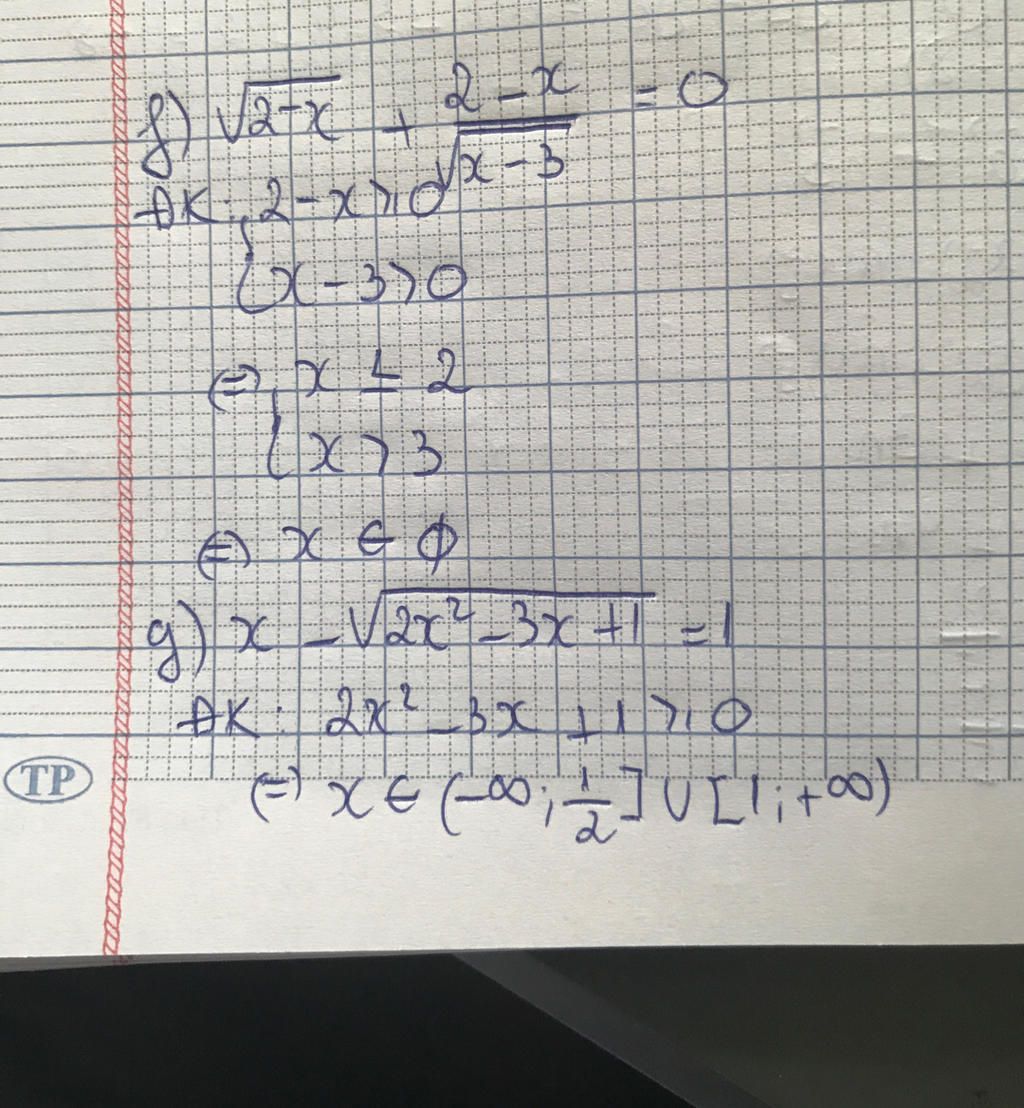 f) √(2-x) + (2-x)/√(x-3) = 0
ĐK: { 2-x ⩾ 0
{ x-3 > 0
⇔ { x ≤ 2
{ x > 3
⇔ x ∈ ϕ
g) x - √(2x² - 3x + 1) = 1
ĐK: 2x² - 3x + 1 ⩾ 0
⇔ x ∈ (-∞; 1/2] ∪ [1; +∞)
TP